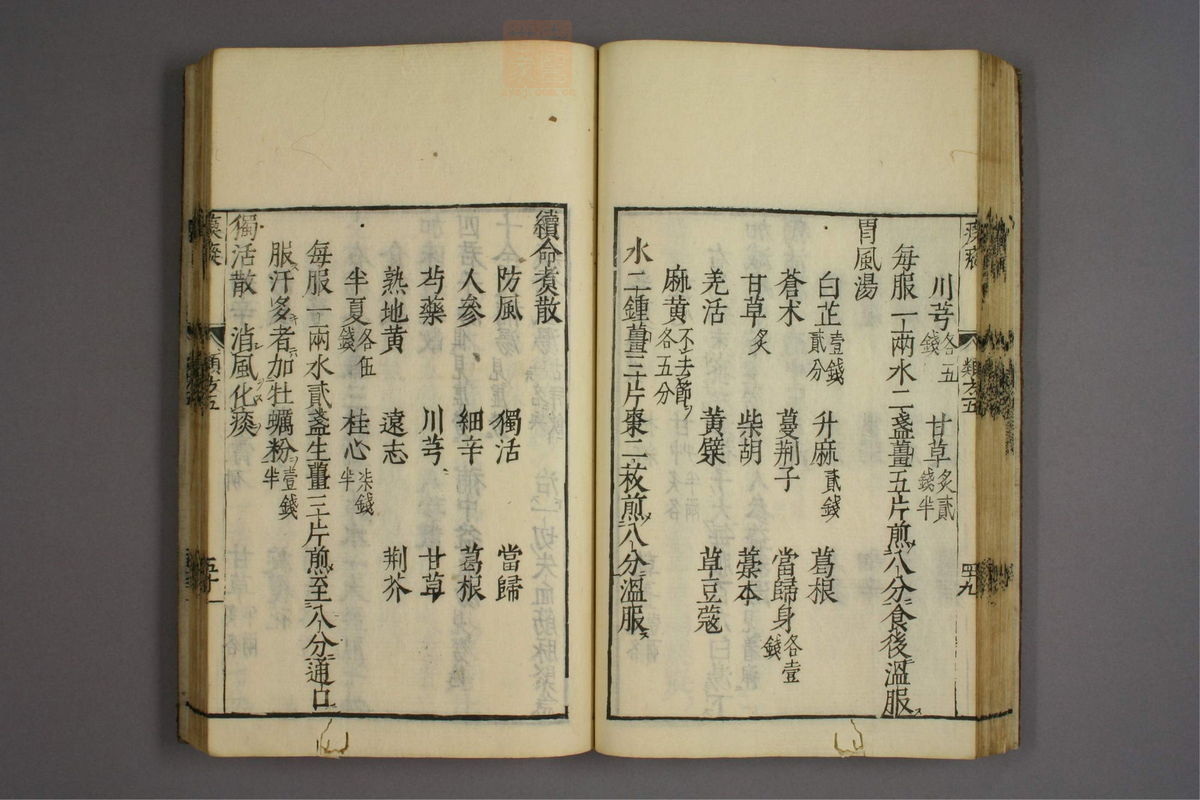 川芎各五錢　甘草炙貳錢半
每服一兩水二盞薑五片煎八分食後溫服
胃風湯
白芷壹錢貳分　升麻貳錢　葛根
蒼朮　蔓荊子　當歸身各壹錢
甘草炙　柴胡　藁本
羌活　黃檗　草豆蔻
麻黃不去節各五分
水二鍾薑三片棗二枚煎八分溫服
類方五
四九
續命煮散
防風　獨活　當歸
人參　細辛　葛根
芍藥　川芎　甘草
熟地黃　遠志　荊芥
半夏各伍錢　桂心柒錢半
每服一兩水貳盞生薑三片煎至八分通口
服汗多者加牡蠣粉壹錢半
獨活散　消風化痰
類方五
五十一